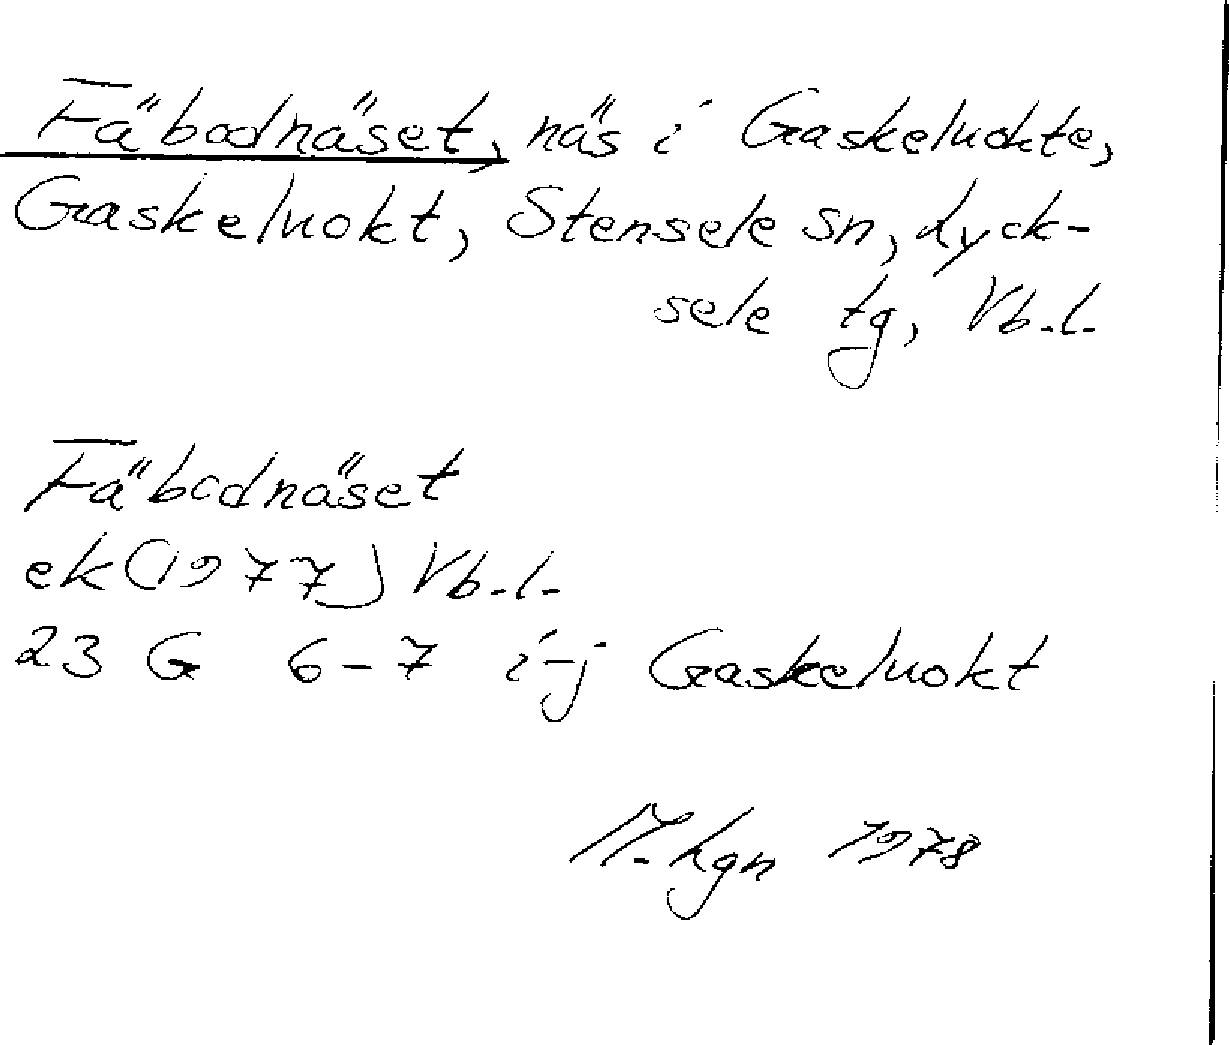 Fäbodnäset, näs i Gaskeluokte,
Gaskeluokt, Stensele sn, Lyck-
sele tg, Vb.l.
Fäbodnäset
ek (1977) Vb.l.
23 G 6-7 i-j Gaskeluokt
M. Lgn 1978